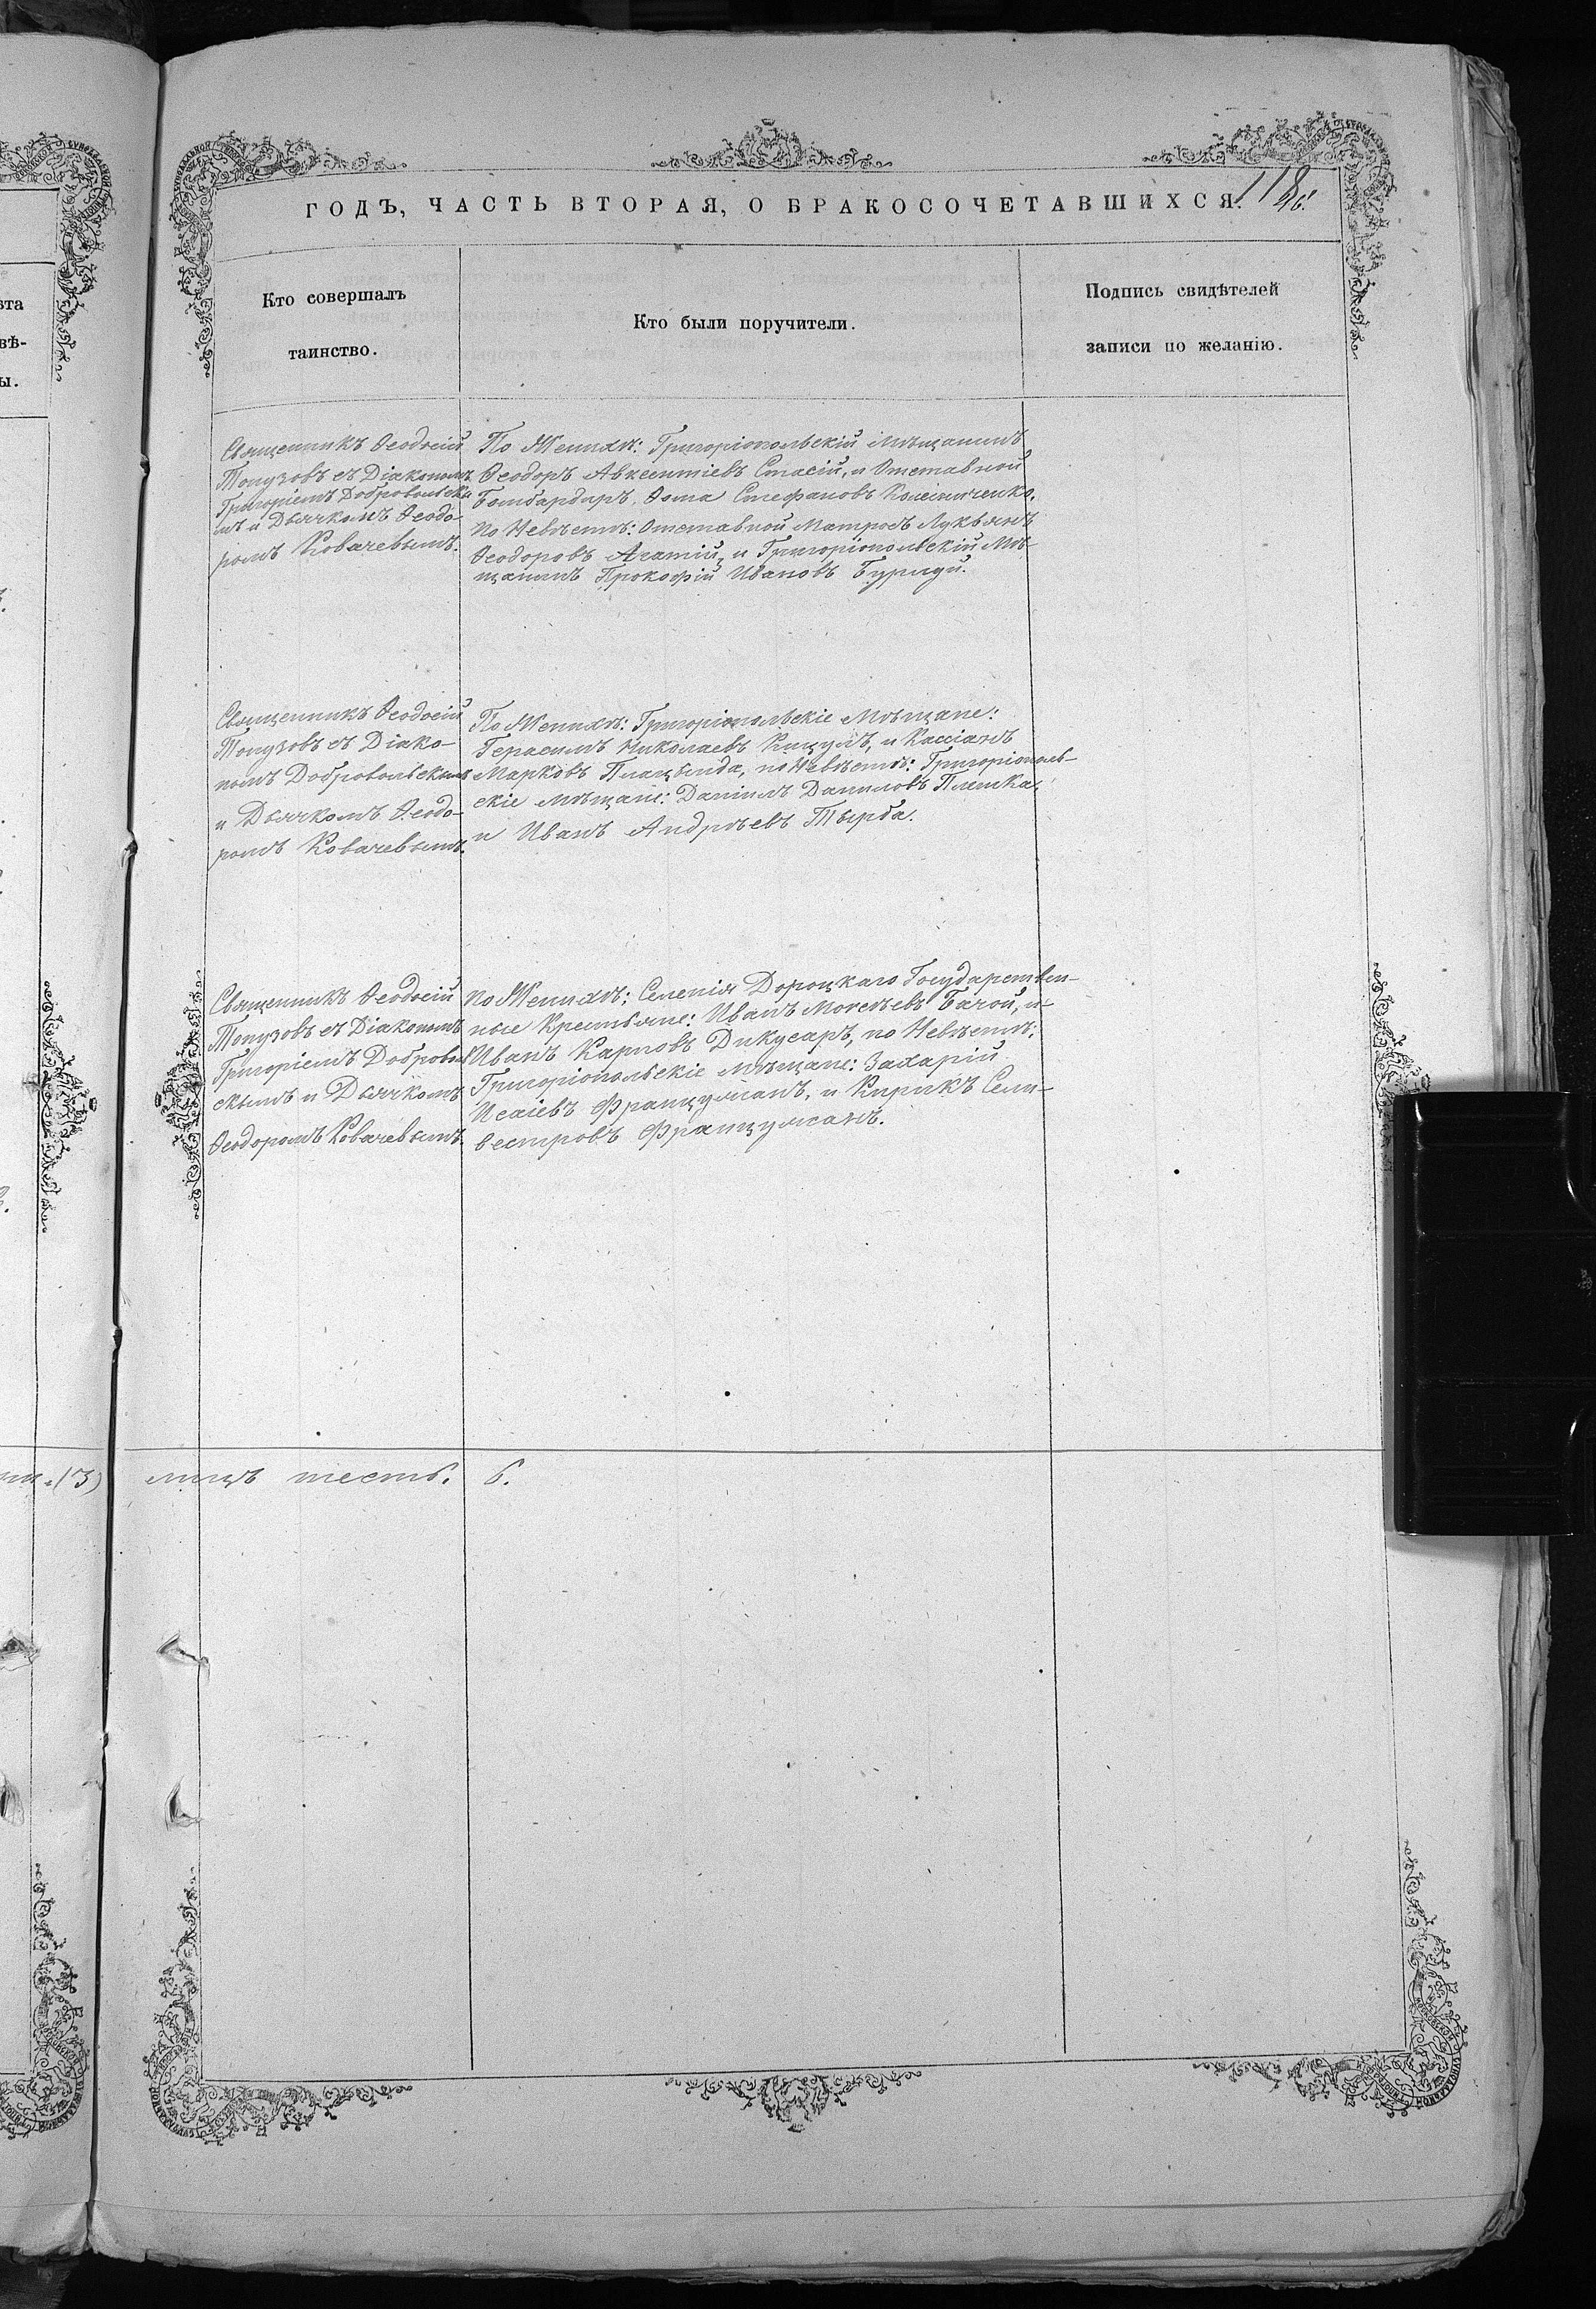 ГОДЪ, ЧАСТЬ ВТОРАЯ, О БРАКОСОЧЕТАВШИХСЯ.
Кто совершалъ
таинство.
Кто были поручители.
Подпись свидѣтелей
записи по желанію.
Священникъ Ѳеодосій
Топузовъ съ Діакономъ
Григоріемъ Добровольски
мъ и Дьячкомъ Ѳеодо-
ромъ Ковачевымъ.
По Женихѣ: Григоріопольскій Мѣщанинъ
Ѳеодоръ Авксентіевъ Стасій, и Отставной
Бомбардиръ Ѳома Стефановъ Колесниченко.
по Невѣстѣ: Отставной Матросъ Лукьянъ
Ѳеодоровъ Агатій, и Григоріопольскій Мѣ-
щанинъ Прокофій Ивановъ
Священникъ Ѳеодосій
Топузовъ съ Діако-
номъ Добровольскимъ
и Дьячкомъ Ѳеодо-
ромъ Ковачевымъ.
По Женихѣ: Григоріопольскіе Мѣщане:
Герасимъ Николаевъ Кицулъ, и Кассіанъ
Марковъ Плацында, по Невѣстѣ: Григоріополь-
скіе мѣщане: Даніилъ Даниловъ Плешка,
и Иванъ Андрѣевъ Тырба.
Священникъ Ѳеодосій
Топузовъ съ Діакономъ
Григоріемъ Доброволь
скымъ и Дьячкомъ
Ѳеодоромъ Ковачевымъ.
по Женихѣ: Селенія Дороцкаго Государствен-
ные Крестьяне: Иванъ Моисѣевъ Бачой, и
Иванъ Карповъ Дикусаръ, по Невѣстѣ:
Григоріопольскіе мѣщане: Захарій
Исаіевъ Французманъ, и Кирикъ Сели-
вестровъ Французманъ.
(3) лицъ шесть. 6.